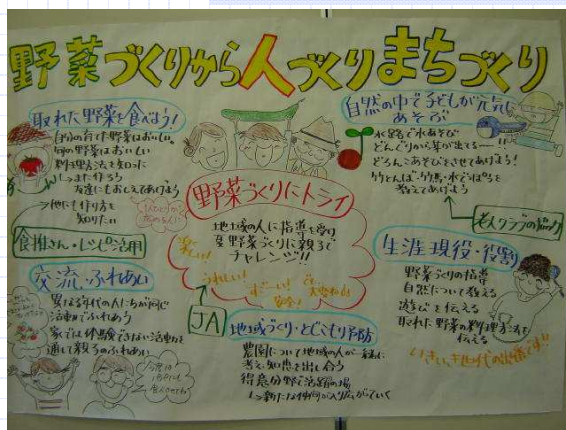 野菜づくりから人づくりまちづくり
取れた野菜を食べよう!
自分の育てた野菜はおいしい
旬の野菜はおいしい
料理方法を知った
↳また作ろう
友達にもおしえてあげよう
→他にも作り方を
知りたい
食推さん・レシピ活用
交流・ふれあい
異なる年代の人たちが同じ
活動でふれあう
家では体験できない活動を
通して親子のふれあい
野菜づくりにトライ
地域の人に指導を受け
夏野菜づくりに親子で
チャレンジ!!
楽しい!
うれしい!
安全!
JA
地域づくり・とじこもり予防
農園について地域の人が一緒に
考え知恵を出し合う
得意分野で活躍の場
↳新たな仲間が入り広がっていく
自然の中で子どもが元気に
あそぶ
水路で水あそび
どんぐりから芽が出てる…
どろんこあそびをさせてあげよう!
竹とんぼ・竹馬・水でっぽうを
教えてあげよう
老人クラブの協力
生涯現役・役割
野菜づくりの指導
自然について教える
遊びを伝える
取れた野菜の料理方法を
伝える
いきいき世代の出番です!!